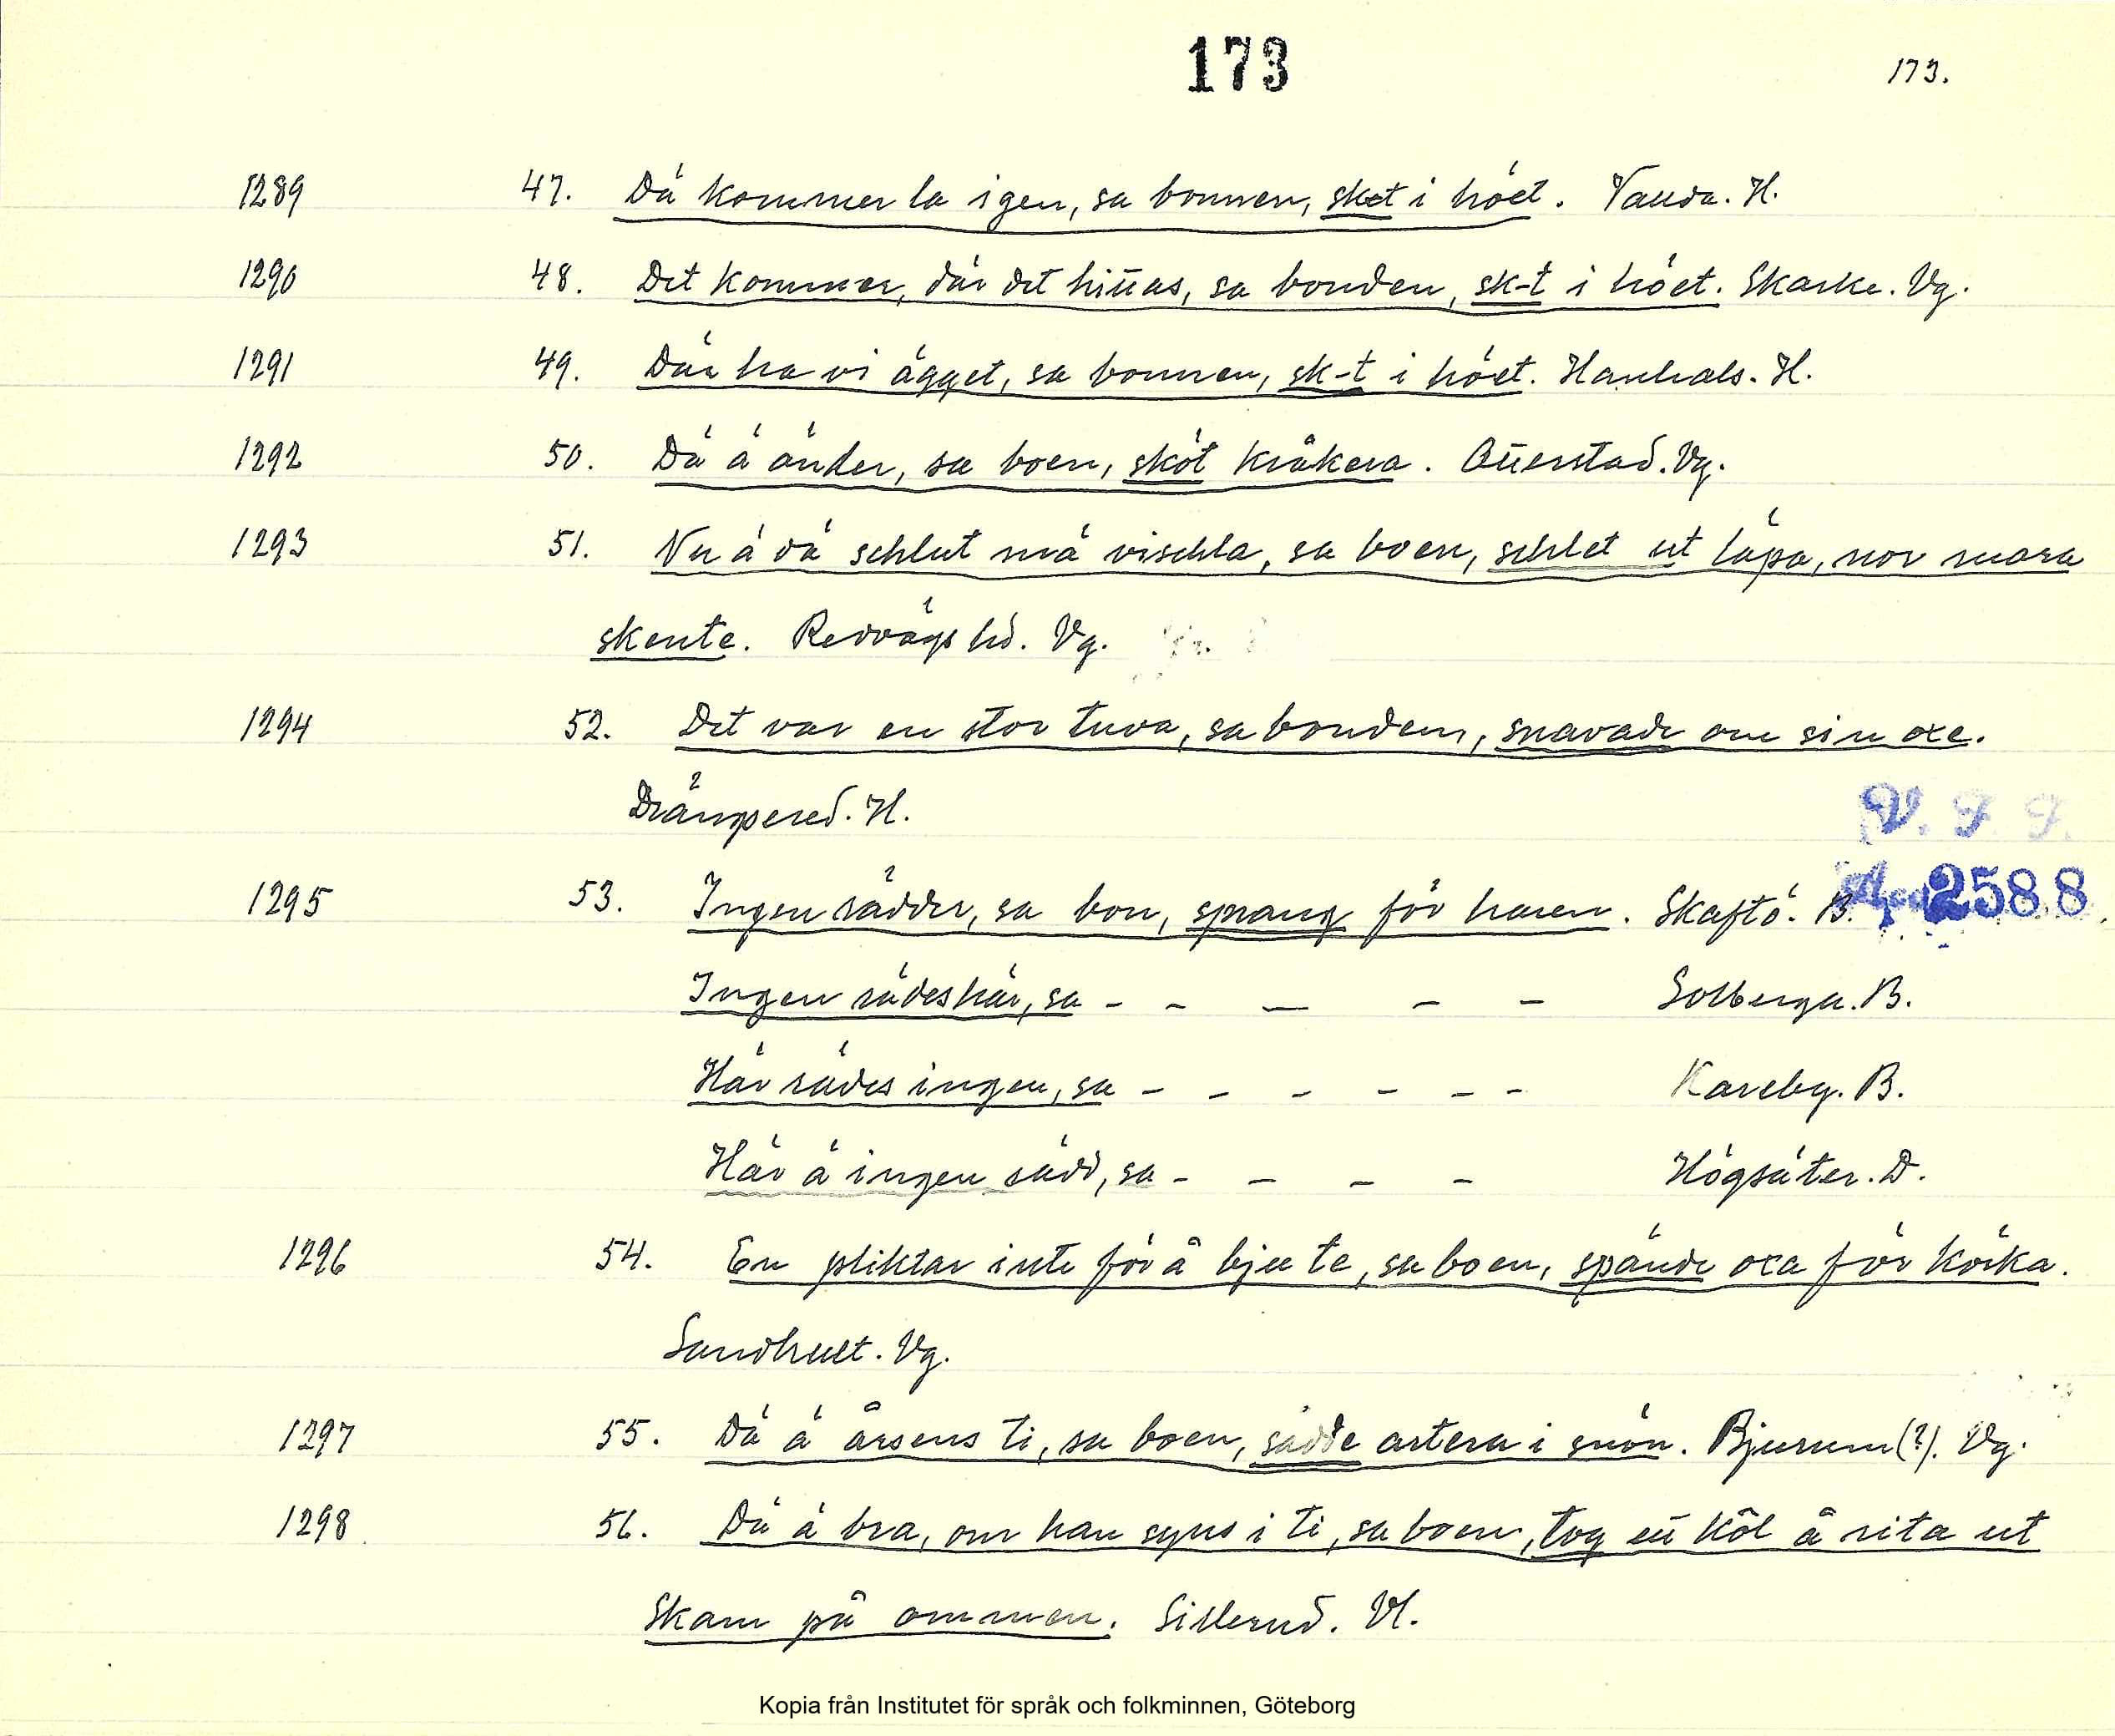 173
173.
1289 47. Dä kommer la igen, sa bonnen, sket i höet. Vanda. H.
1290 48. Det kommer, där det hinnas, sa bonden, sk-t i höet. Skarke. Vg.
1291 49. Där ha vi ägget, sa bonnen, sk-t i höet. Hanhals. H.
1292 50. Dä ä änder, sa boen, sköt kråkera. Otterstad. Vg.
1293 51. Nu ä dä schlut mä vischla, sa boen, schlet ut läpa, nor mara
skente. Redvägs hd. Vg.
1294 52. Det var en stor tuva, sa bonden, snavade om sin oxe.
Drängsered. H.
V. F. F.
1295 53. Ingen rädder, sa bon, sprang för haren. Skaftö. B. Acc. 2588
Ingen rädes här, sa - - - - - Solberga. B.
Här rädes ingen, sa - - - - - - Kareby. B.
Här ä ingen rädd, sa - - - - Högsäter. D.
1296 54. En pliktar inte för å bju te, sa boen, spände oxa för körka.
Sandhult. Vg.
1297 55. Dä ä årsens ti, sa boen, sådde ärtera i snön. Bjurum (?). Vg.
1298 56. Dä ä bra, om han syns i ti, sa boen, tog ett kôl å rita ut
Skam på ommen. Sillerud. Vl.
Kopia från Institutet för språk och folkminnen, Göteborg